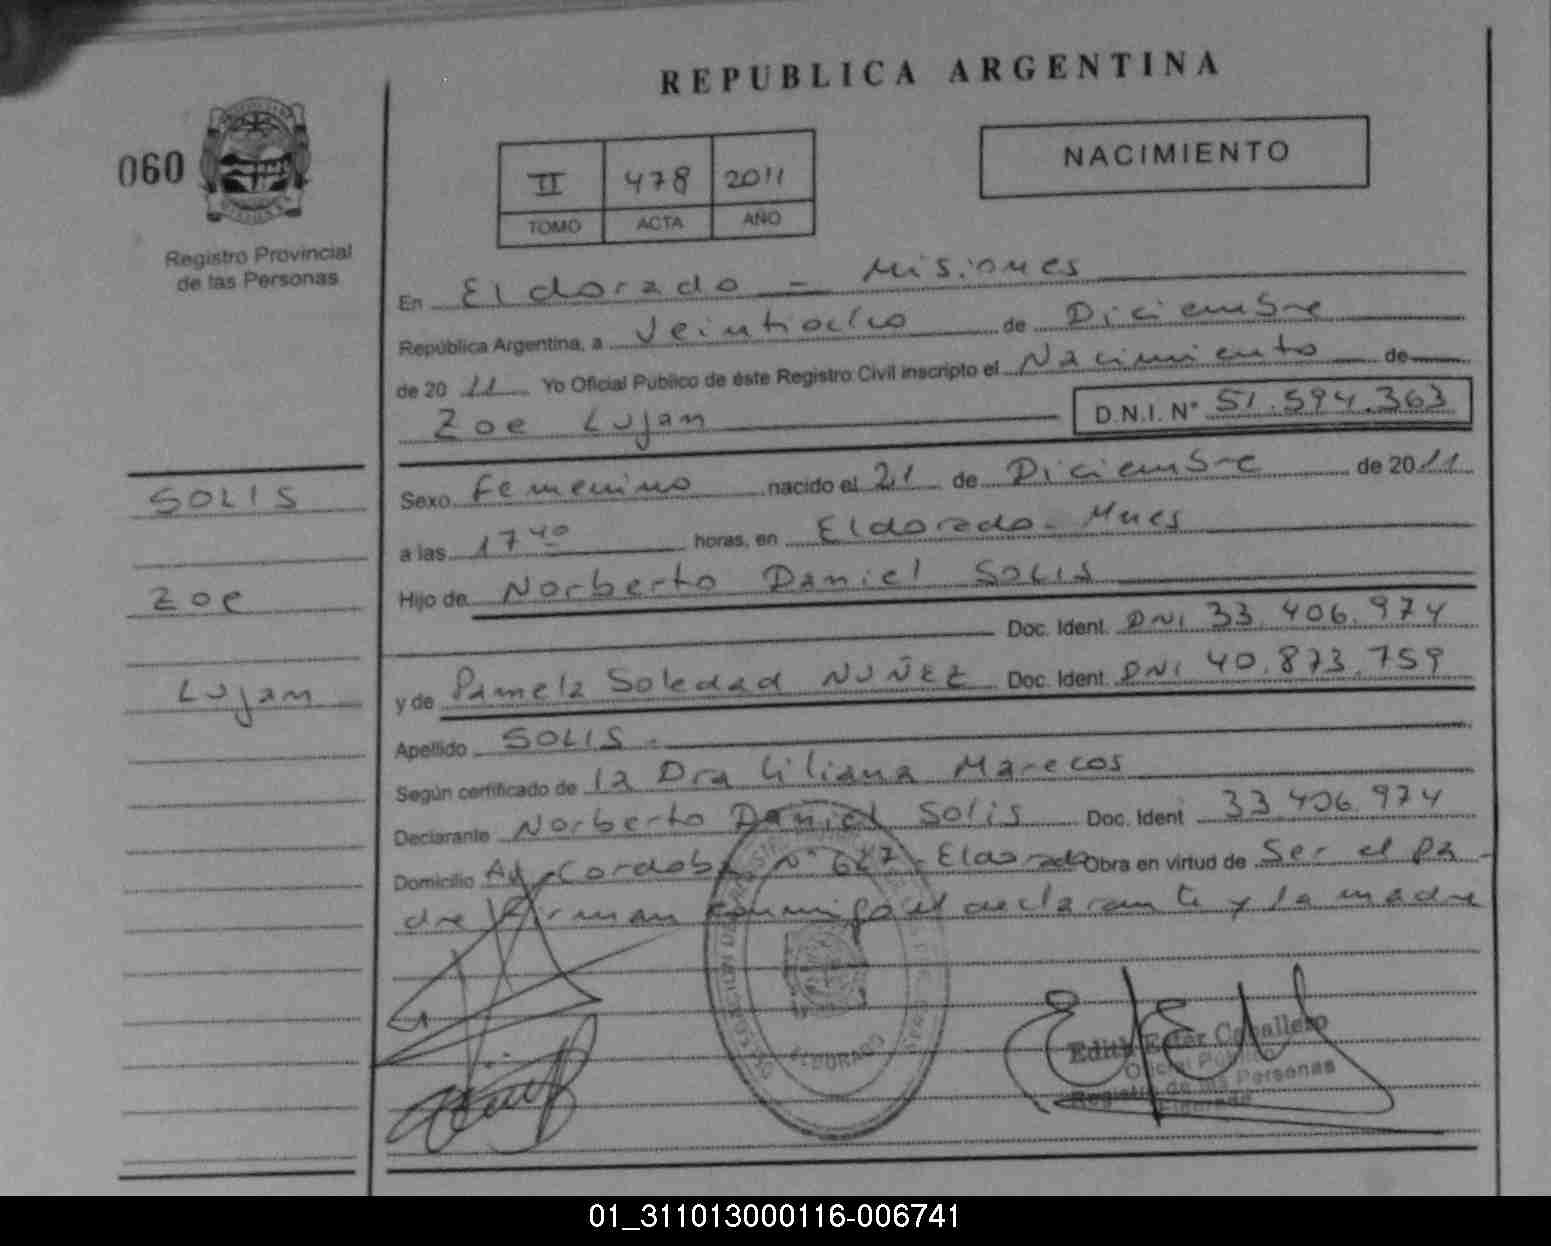 REPUBLICA ARGENTINA
060
Registro Provincial
de las Personas
II 478 2011
TOMO ACTA AÑO
NACIMIENTO
En Eldorado - Misiones
República Argentina, a Veintiocho de Diciembre
de 20 11 Yo Oficial Público de éste Registro Civil inscripto el Nacimiento de
Zoe Lujan D.N.I. N° 51.594.363
SOLIS
Zoe
Lujan
Sexo Femenino nacido el 21 de Diciembre de 2011
a las 17 40 horas, en Eldorado - Mnes
Hijo de Norberto Daniel SOLIS
Doc. Ident. DNI 33.406.974
y de Pamela Soledad NUÑEZ Doc. Ident. DNI 40.873.759
Apellido SOLIS -
Según certificado de la Dra Liliana Marecos
Declarante Norberto Daniel Solis Doc. Ident 33.406.974
Domicilio Av. Cordoba N° 627 - Eldorado Obra en virtud de Ser el Pa-
dre Firman conmigo el declarante y la madre
ELDORADO
Edith Ester Caballero
Oficial Público
Registro de las Personas
Eldorado
01_311013000116-006741